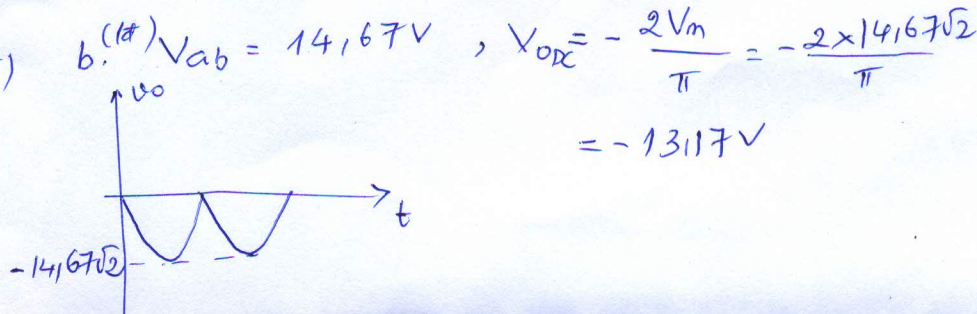 ) b. (1đ) Vab = 14,67V , VODC = - 2Vm / π = - 2×14,67√2 / π
= - 13,17V
vo
t
-14,67√2